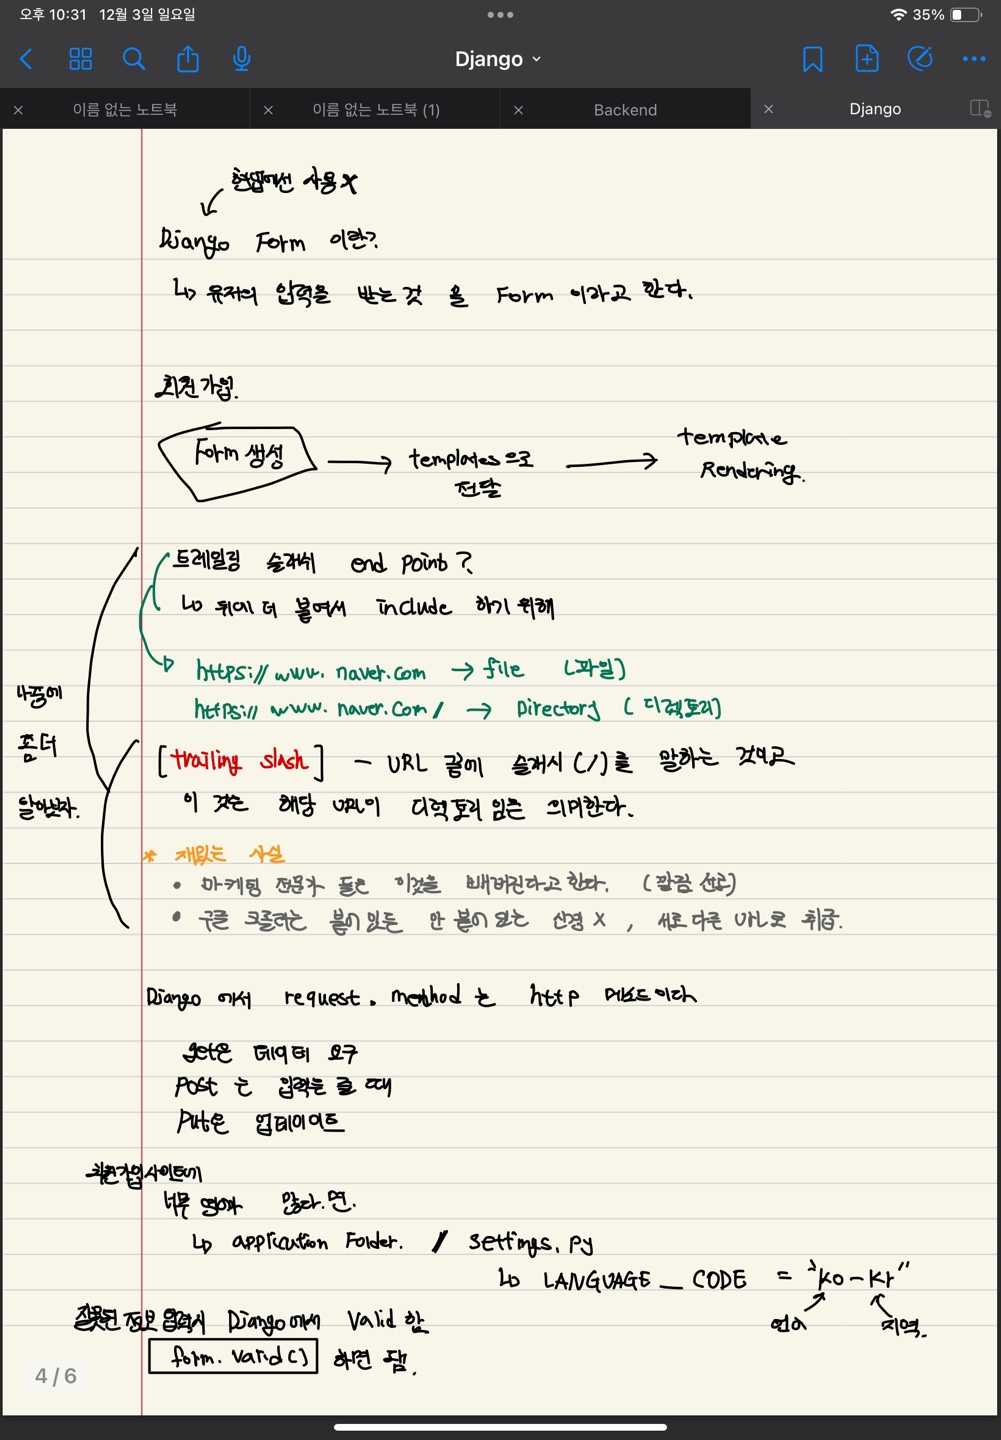 오후 10:31 12월 3일 일요일
35%
Django
이름 없는 노트북
이름 없는 노트북 (1)
Backend
Django
현업에선 사용 X
Django Form 이란?
↳ 유저의 입력을 받는 것 을 Form 이라고 한다.
회원가입.
Form 생성 → templates으로 전달 → template Rendering.
트레일링 슬래쉬 end point?
↳ 뒤에 더 붙여서 include 하기 위해
https:// www. naver.com → file (파일)
https:// www. naver.com / → Directory ( 디렉토리)
나중에
좀 더
알아보자.
[trailing slash] - URL 끝에 슬래시 (/)를 말하는 것이고
이 것은 해당 URL이 디렉토리 임을 의미한다.
* 재밌는 사실
• 마케팅 전문가 들은 이것을 빼버린다고 한다. (깔끔 선호)
• 구글 크롤러는 붙어 있든 안 붙어 있든 신경 X , 서로 다른 URL로 취급.
Django 에서 request. method 는 http 메소드이다
get은 데이터 요구
Post 는 입력을 줄 때
Put은 업데이트
회원가입사이트에
너무 영어가 많다.면.
↳ application Folder. / settings. py
↳ LANGUAGE_CODE = "ko-Kr"
언어
지역.
잘못된 정보 입력시 Django에서 Valid 함.
form. valid() 하면 됨.
4 / 6